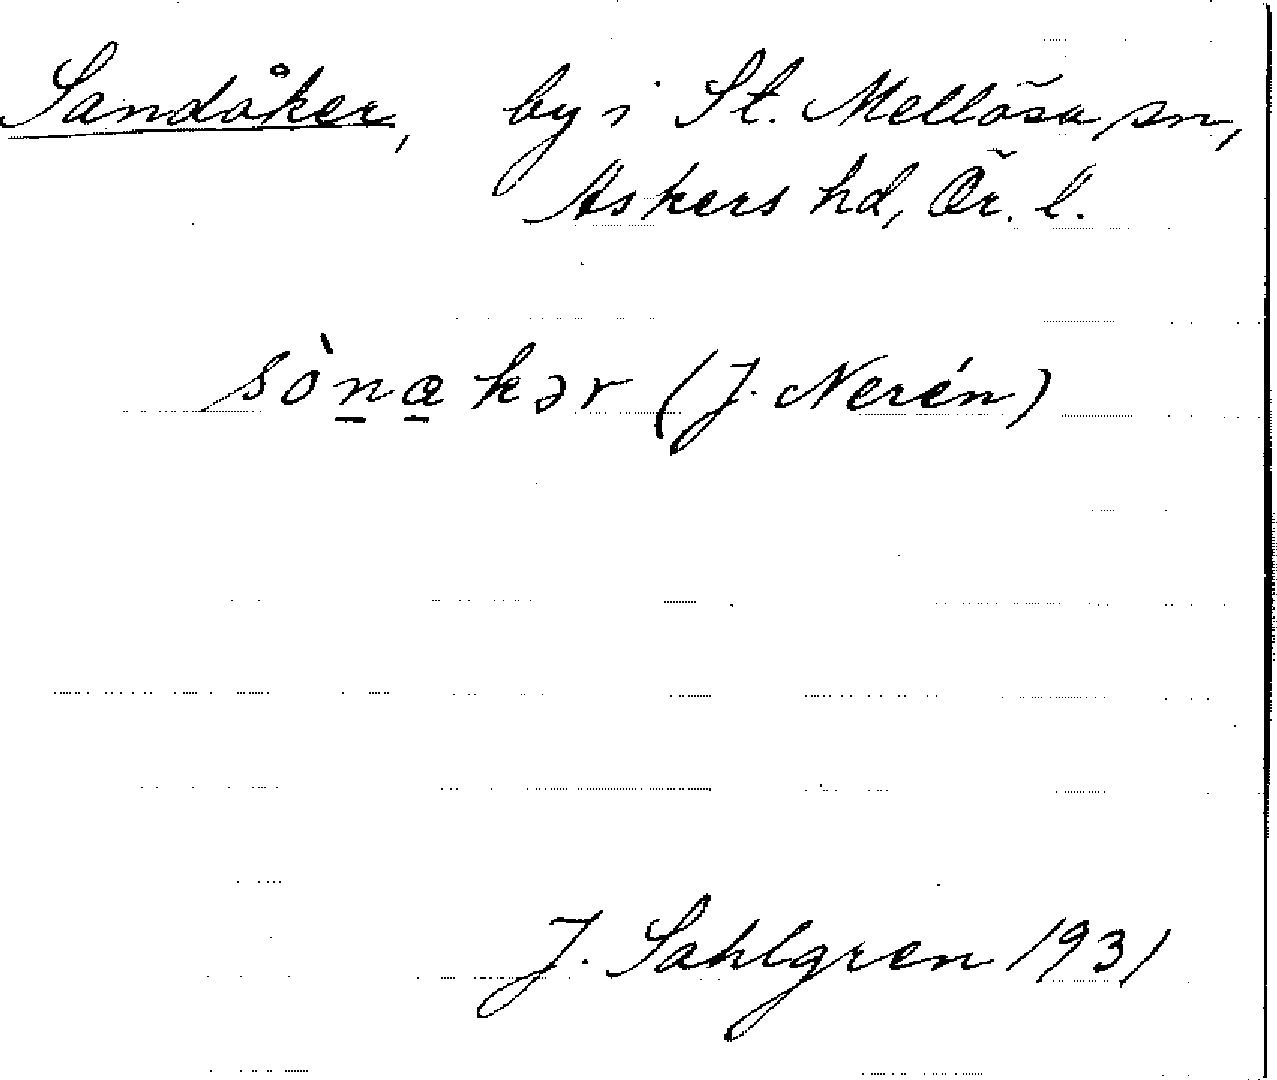 Sandåker, by i St. Mellösa sn,
Askers hd, Ör. l.
sònækər (J. Nerén)
J. Sahlgren 1931